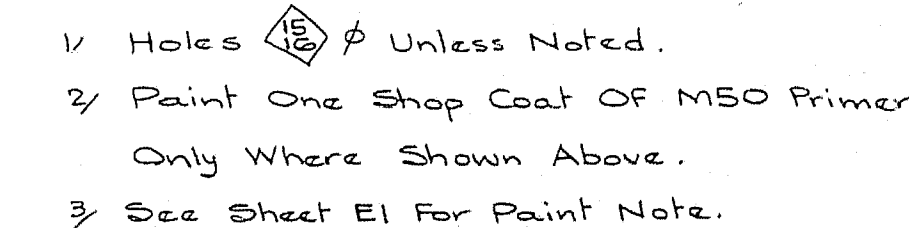 1/ Holes 15/16 ϕ Unless Noted.
2/ Paint One Shop Coat OF M50 Primer
Only Where Shown Above.
3/ See Sheet E1 For Paint Note.